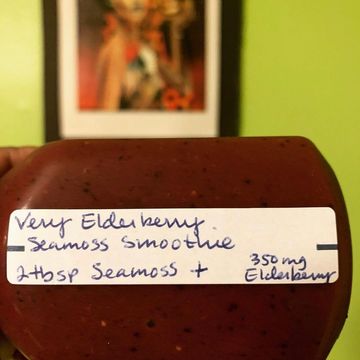 Very Elderberry
Seamoss Smoothie
2tbsp Seamoss + 350mg Elderberry